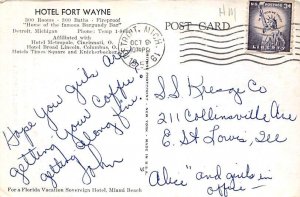 HOTEL FORT WAYNE
300 Rooms - 300 Baths - Fireproof
"Home of the famous Burgundy Bar"
Detroit, Michigan Phone: Temp 1-
Affiliated with
Hotel Metropole, Cincinnati, O.
Hotel Broad Lincoln, Columbus, O.
Hatch Times Square and Knickerbocker
Hope you girls are
getting your coffee &
getting along
fine.
John
For a Florida Vacation Sovereign Hotel, Miami Beach
POST CARD
MICH.
OCT 9
PM
U.S. POSTAGE
3¢
LIBERTY
S S Kresge Co
211 Collinsville Ave
E. St Louis, Ill
Alice" and girls in
office -